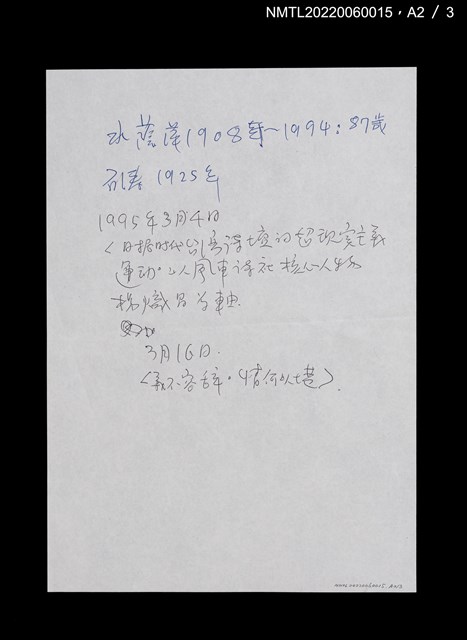 NMTL20220060015，A2 / 3
水蔭萍1908年~1994：87歲
1925年
1995年3月4日
〈日据时代台湾詩壇的超现实主義
運動。以風車詩社核心人物
楊熾昌为軸
3月16日.
〈義不容辞。情何以堪〉.
NMTL20220060015, A2/3